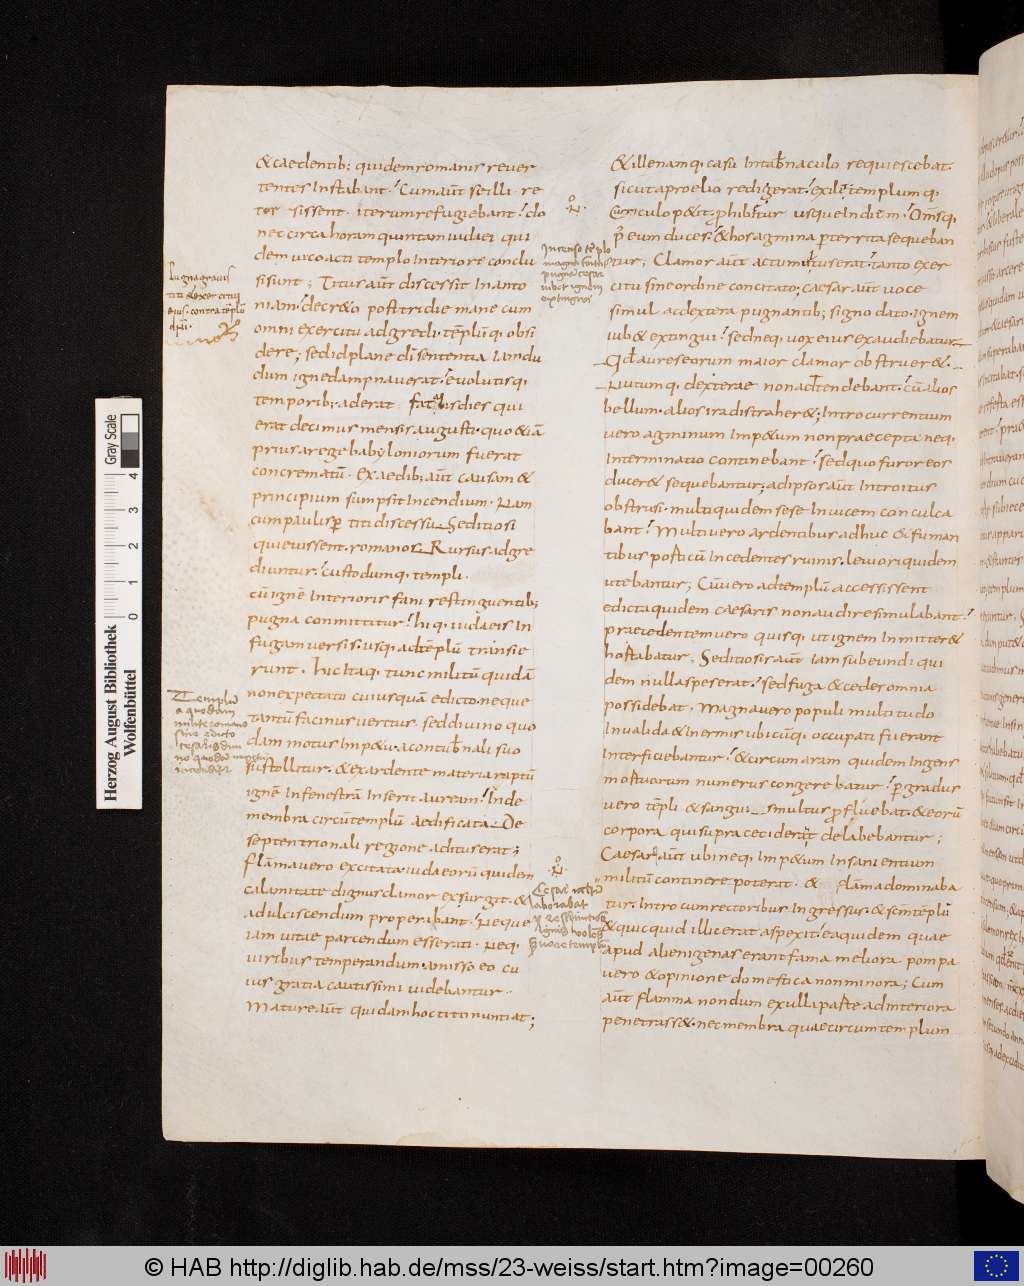 &caedentib; quidem romanis rever
tentes Instabant. Cum aūt se illi re
sissent. iterum refugiebant. do
nec circa horam quintam iudaei qui
dem vico acti templo Interiore conclu
sisunt; Titus aūt discessit In anto
niam. decr&o postridie mane cum
omni exercitu adgredi. tēplūq. obsi
dere; sed id plane dī sententia Iamdu
dum igne dampnaverat. evolutisq
temporib; aderat fatalis dies qui
erat decimus mensis augusti. quo &iā
prius a rege babyloniorum fuerat
concrematū. Ex aedib; aūt causam &
principium sumpsit Incendium. Nam
cum paulisp titi discessu Seditiosi
quievissent. romanos Rursus adgre
diuntur. custodumq. templi.
cū ignē Interioris fani restinguentib;
pugna committitur. hiq. iudaeis In
fugam versis. usq. ad tēplū transie
runt. hic Itaq. tunc militū quidā
non expectato cuiusquā edicto. neque
tantū facinus veritus. sed divino quo
dam motus Imp&u. a contubnali suo
sustollitur. & ex ardente materia raptū
ignē In fenestrā Inserit auream. Inde
membra circū templū aedificata De
septentrionali regione aditus erat;
Flāma vero excitata iudaeorū quidem
calamitate dignus clamor exsurgit. &
ad ulciscendum properibant. Neque
iam vitae parcendum esse rati. Neq.
viribus temperandum. amisso eo cu
ius gratia cautissimi videbantur.
Mature aūt quidam hoc tito nuntiat;
Pugna gravis
titi & exercitus
eius contra tēplū
dni.
Templū
a quodam
milite romano
sine edicto
cesaris
incenditur
N
Incenso tēplo
magna
pugna cesar
iubet ignem
extingui
N
Cesar
laborabat
templum
&ille namq. casu In tabnaculo requiescebat.
sicut a proelio redigerat. exile templum qi
Curriculo p&it. phibitur usque Incdm. Omsq.
p eum duces. & hos agmina pterrita sequeban
tur; Clamor aūt ac tumultus erat. tanto exer
citu sine ordine concitato; caesar aūt voce
simul ac dextera pugnantib; signo dato. ignem
iub& extingui. sed neq. vox eius exaudiebatur
Qd aures eorum maior clamor obstruer&.
Nutumq. dexterae non adtendebant. cū alios
bellum. alios ira distraher&; Introcurrentium
vero agminum Imp&um non praecepta neq.
Interminatio continebant. sed quo furor eos
ducer& sequebantur; adipsos aūt Introitus
obstrusi. multi quidem sese Invicem conculca
bant. Multi vero ardentibus adhuc & fuman
tibus posticū Incedentes ruinis. leviori quidem
ut ebantur; Cū vero ad templū accessissent
edicta quidem caesaris non audire simulabant.
praecedentem vero quisq. ut ignem Inmitter&
hostabatur; Seditiosis aūt Iam subeundi qui
dem nulla spes erat. sed fuga & cede romnia
possidebat. Magna vero populi multitudo
Invalida & Inermis ubicūq. occupati fuerant
Interficiebantur. & circum aram quidem Ingens
mortuorum numerus congerebatur. p gradus
vero tēpli & sanguis multus pfluebat. & eorū
corpora qui supra ceciderāt delabebantur;
Caesar aūt ubi neq. Imp&um Insanientium
militū continere poterit. & flāma dominaba
tur. Intro cum rectoribus Ingressus. & scm tēplū
& quicquid illic erat aspexit. ea quidem quae
apud alienigenas erant fama meliora pompa
vero & opinione domestica non minora; Cum
aūt flamma nondum ex ulla parte ad interiora
penetrass&. nec membra quae circum templum
Gray Scale
4
3
2
1
0
Herzog August Bibliothek
Wolfenbüttel
© HAB http://diglib.hab.de/mss/23-weiss/start.htm?image=00260